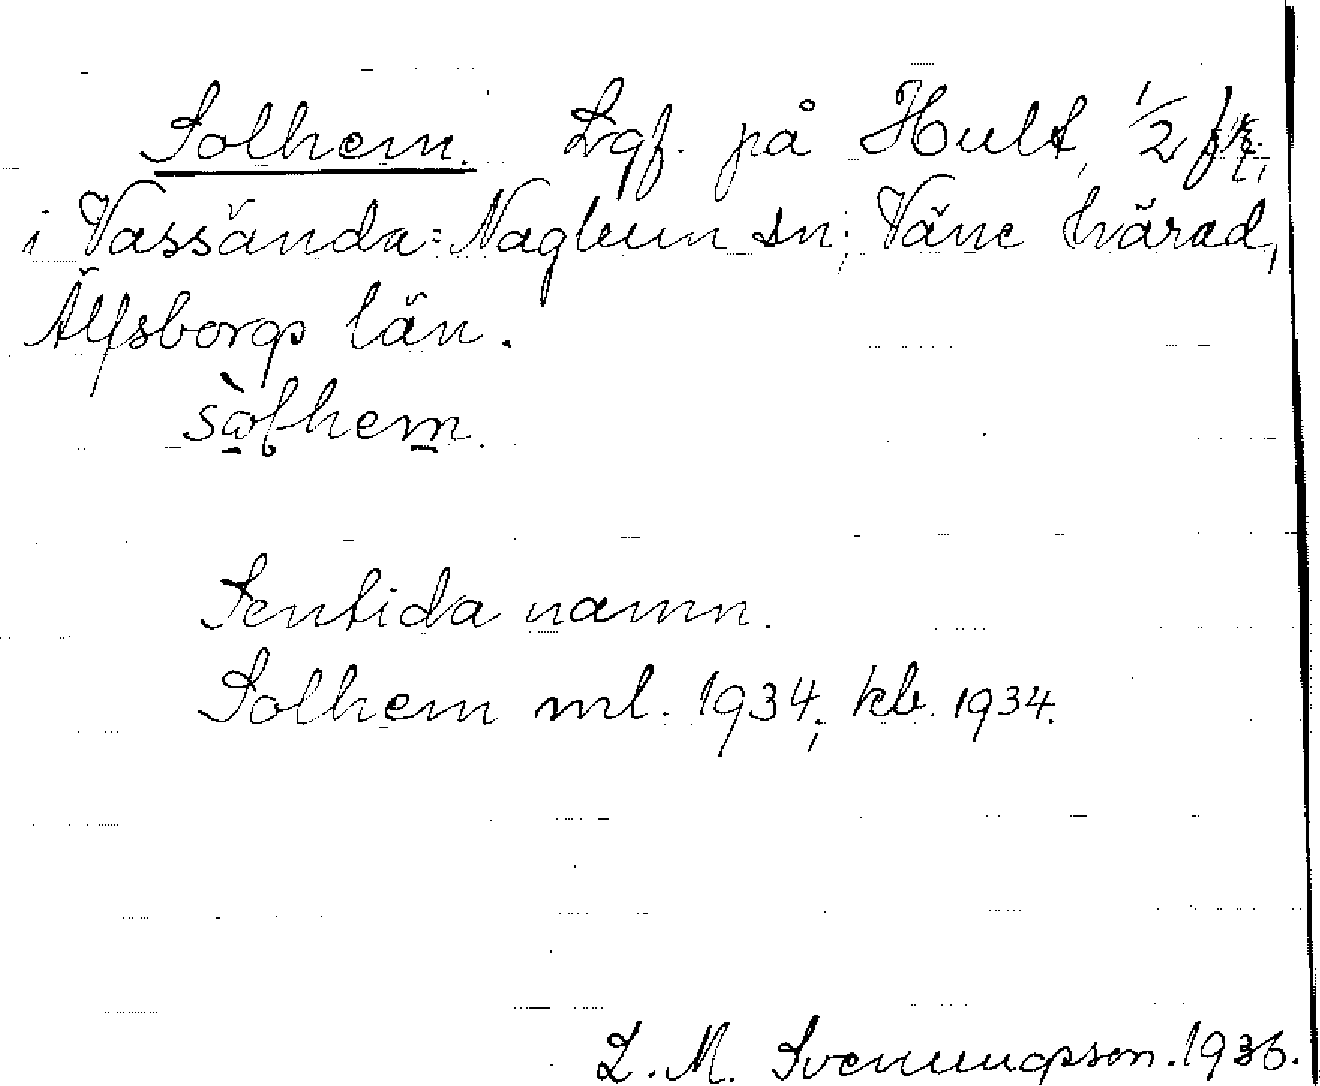 Solhem. Lgf. på Hult, 1/2
i Vassända-Naglum sn; Väne härad,
Älfsborgs län.
sòlhem.
Sentida namn.
Solhem ml. 1934; kb. 1934.
L. M. Svenungsson. 1936.